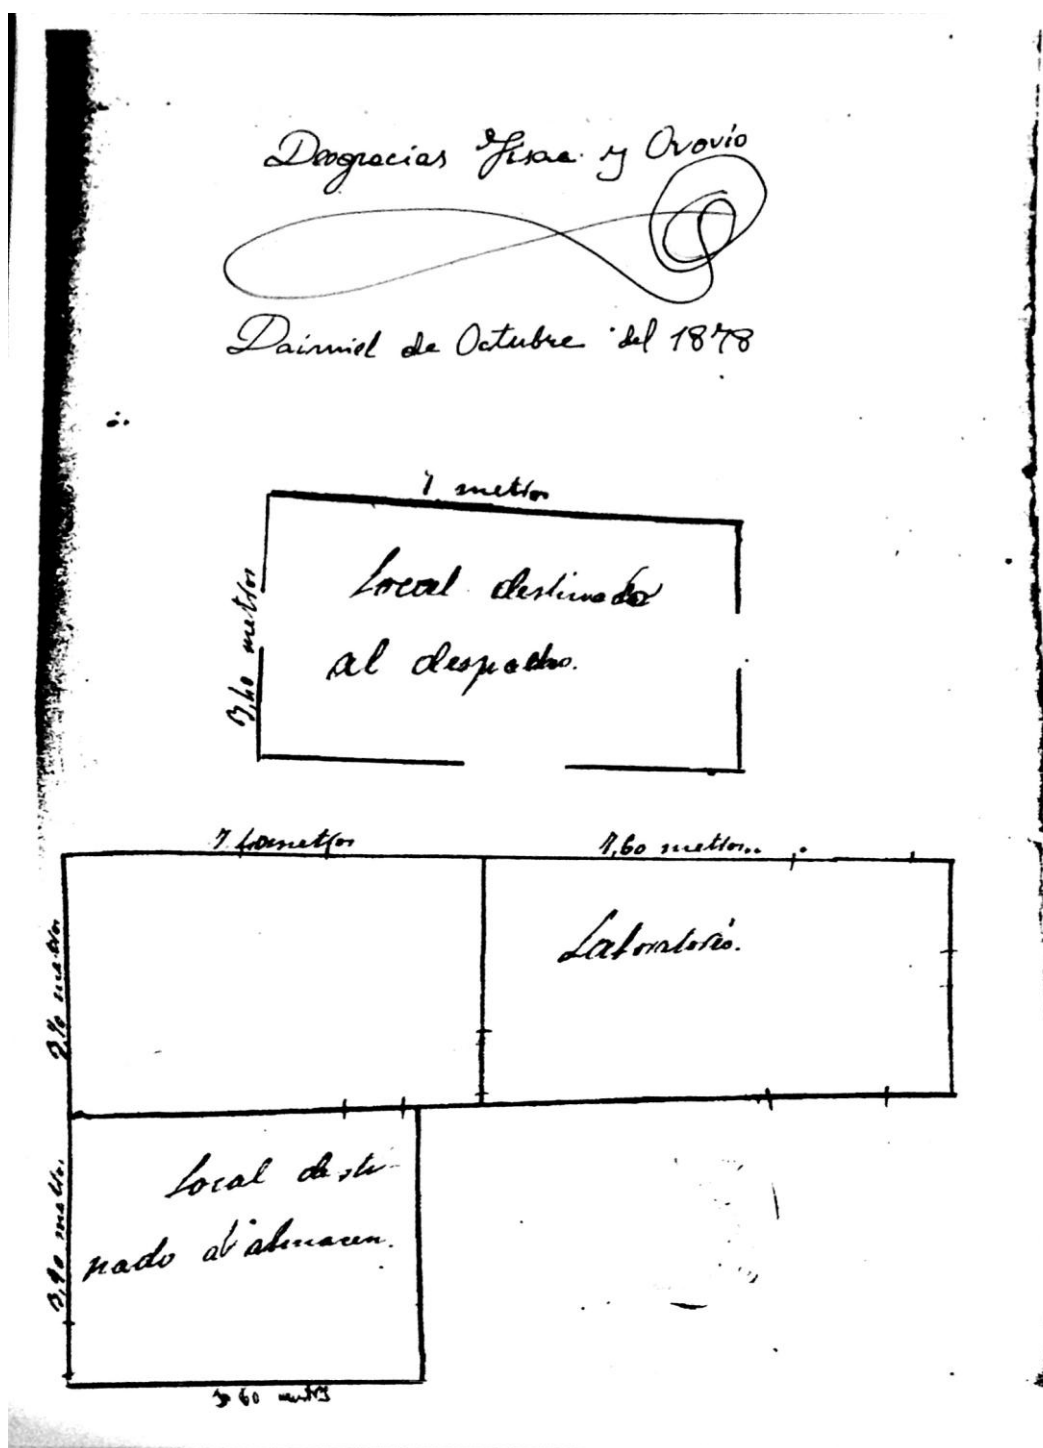 Deogracias Fisac y Orovio
Daimiel de Octubre del 1878
7 metros
3,40 metros
Local destinado
al despacho.
metros
7,60 metros
metros
Laboratorio.
3,90 metros
Local desti-
nado al almacen.
60 metros